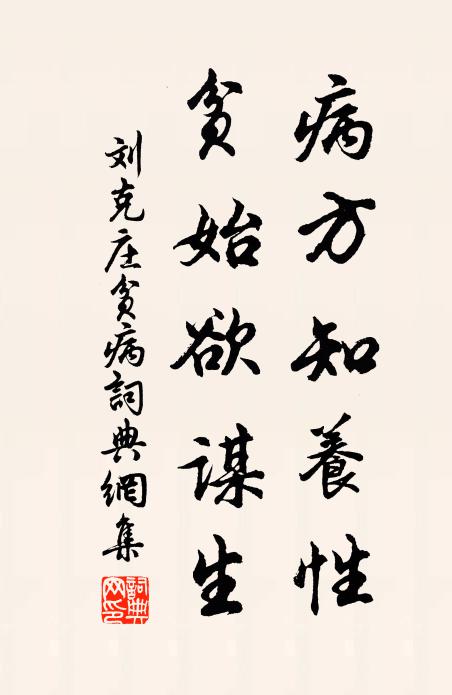 病方知養性
貧始欲謀生
刘克庄貧病詞典網集
詞典网印